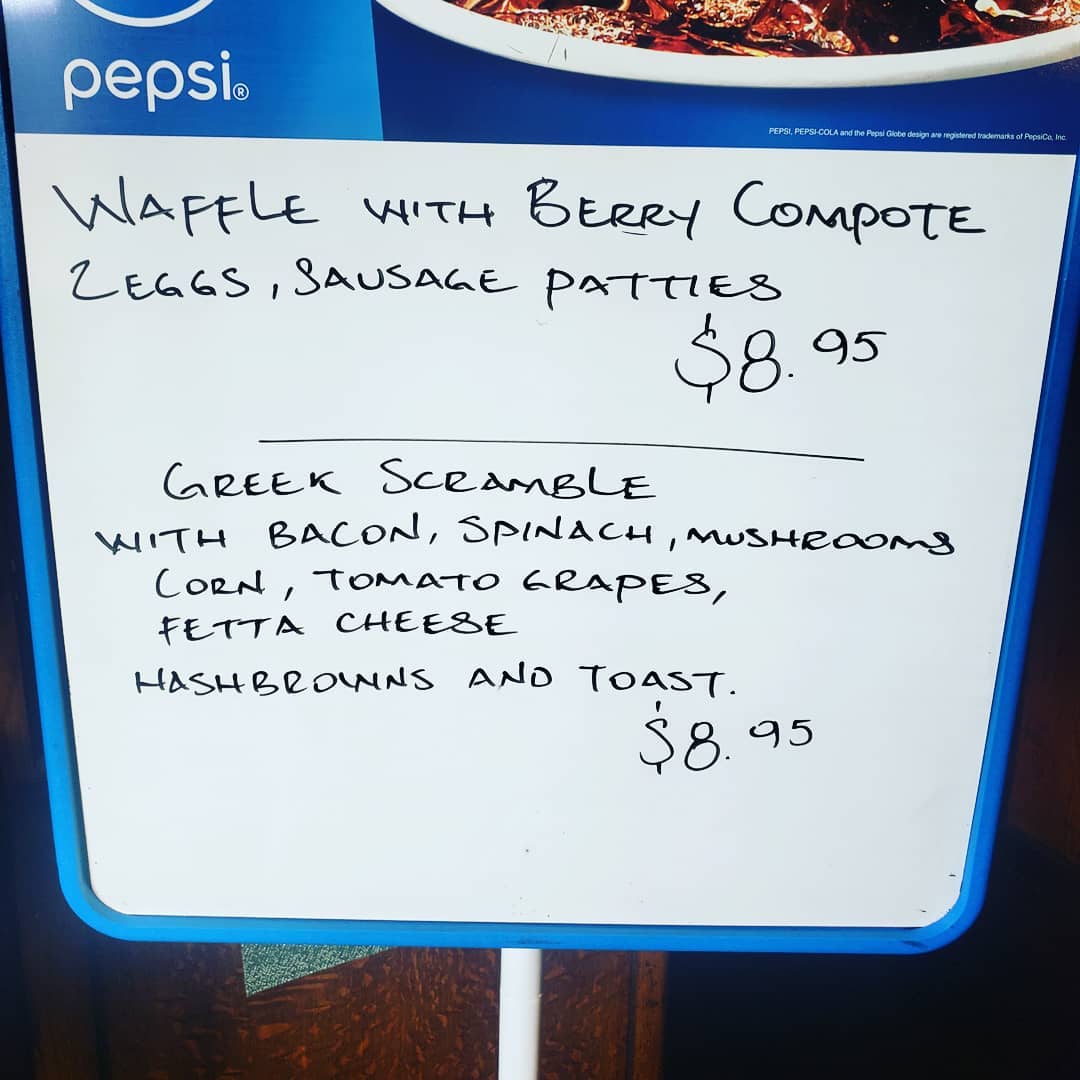 pepsi®
PEPSI, PEPSI-COLA and the Pepsi Globe design are registered trademarks of PepsiCo, Inc.
WAFFLE WITH BERRY COMPOTE
2 EGGS, SAUSAGE PATTIES
$8.95
GREEK SCRAMBLE
WITH BACON, SPINACH, MUSHROOMS
CORN, TOMATO GRAPES,
FETTA CHEESE
HASHBROWNS AND TOAST.
$8.95